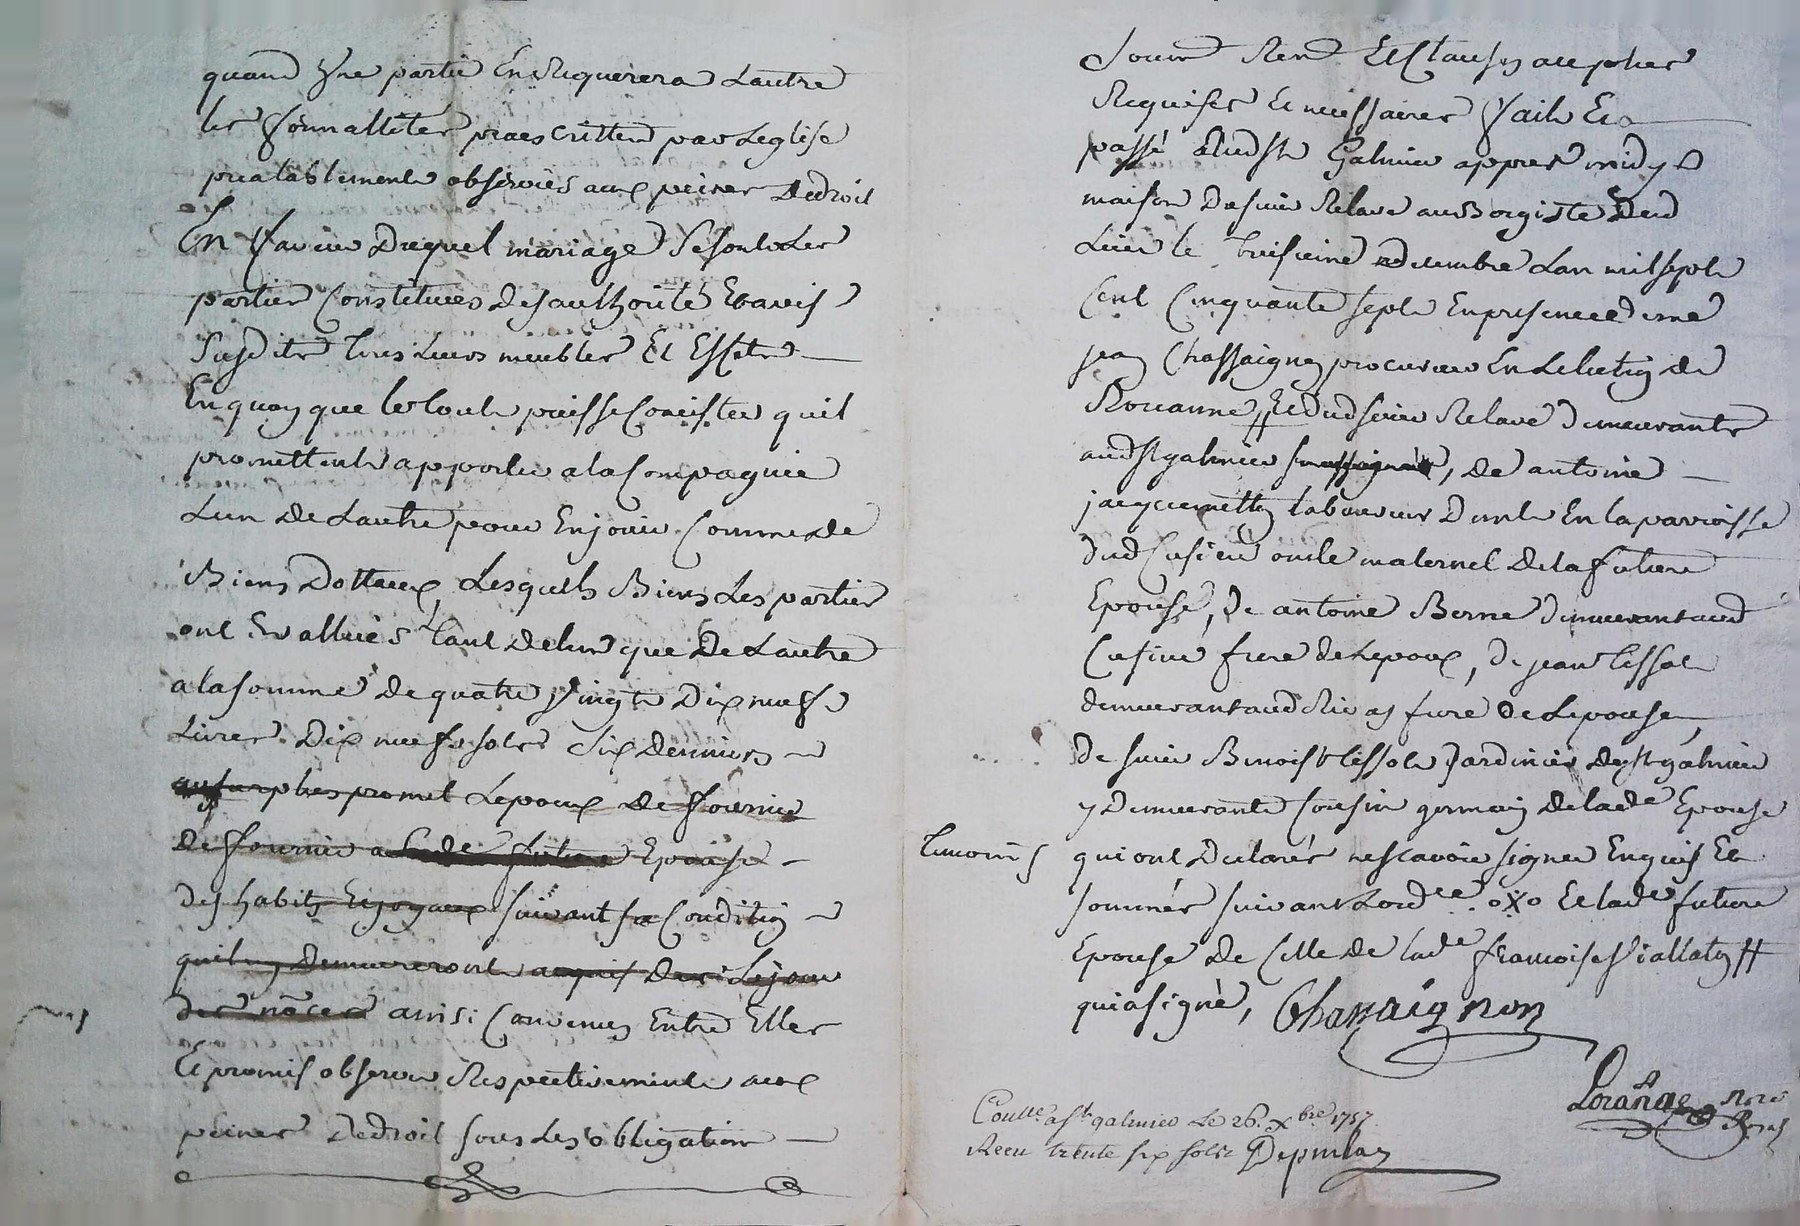 quand Une partie En Requerera Lautre
les formallités praescrittes par Leglise
prealablement observées aux peines Dedroit
En faveur Duquel mariage Se sont Les
parties Constituées desauthorité Et avis
susdits tous Leurs meubles Et Effets
En quoy que le tout puisse Concister quil
promettent apporter a la Compagnie
Lun De Lautre pour En jouir Comme de
Biens Dottaux Lesquels Biens Les parties
ont Evalluës tant De lun que De Lautre
a la somme de quatre Vingt Dix neuf
Livres Dix neuf sols Six Deniers
au surplus promet Lepoux De fournir
De fournir a Lade future Epouse
des habits Et joyaux suivant sa Condition
quil y demeureront acquis Des Le jour
des nôces ainsi Convenu Entre Elles
Et promis observer Respectivement aux
peines Dedroit sous Les obligations
Soum Ren Et Clauses au plus
Requises Et necessaires fait Et
passé Audst Galmier appres midy
maison De sieur Relave aubergiste Dud
Lieu le treisieme decembre Lan mil sept
Cent Cinquante sept En presence de me
jean Chassaignon procureur En Lelection de
Roanne, Et dud sieur Relave demeurants
aud st galmier, de antoine
jacquemetton laboureur Dmt En la parroisse
dud Cusieu oncle maternel De la future
Epouse, de antoine Berne demeurant aud
Cusieu frere de Lepoux, de jean tissot
demeurant aud Rivas frere De Lepouse,
De sieur Benoist tissot Jardinier De st galmier
y Demeurant Cousin germain De lade Epouse
temoins qui ont Declarés ne scavoir signer Enquis Et
sommés suivant Lordce oXo Et lade future
Epouse De Celle de lade francoise Viallaton
qui a signé, Chassaignon
Lorange Nore
Royal
Conlle a st galmier Le 26. xbre 1757
Receu trente six sols